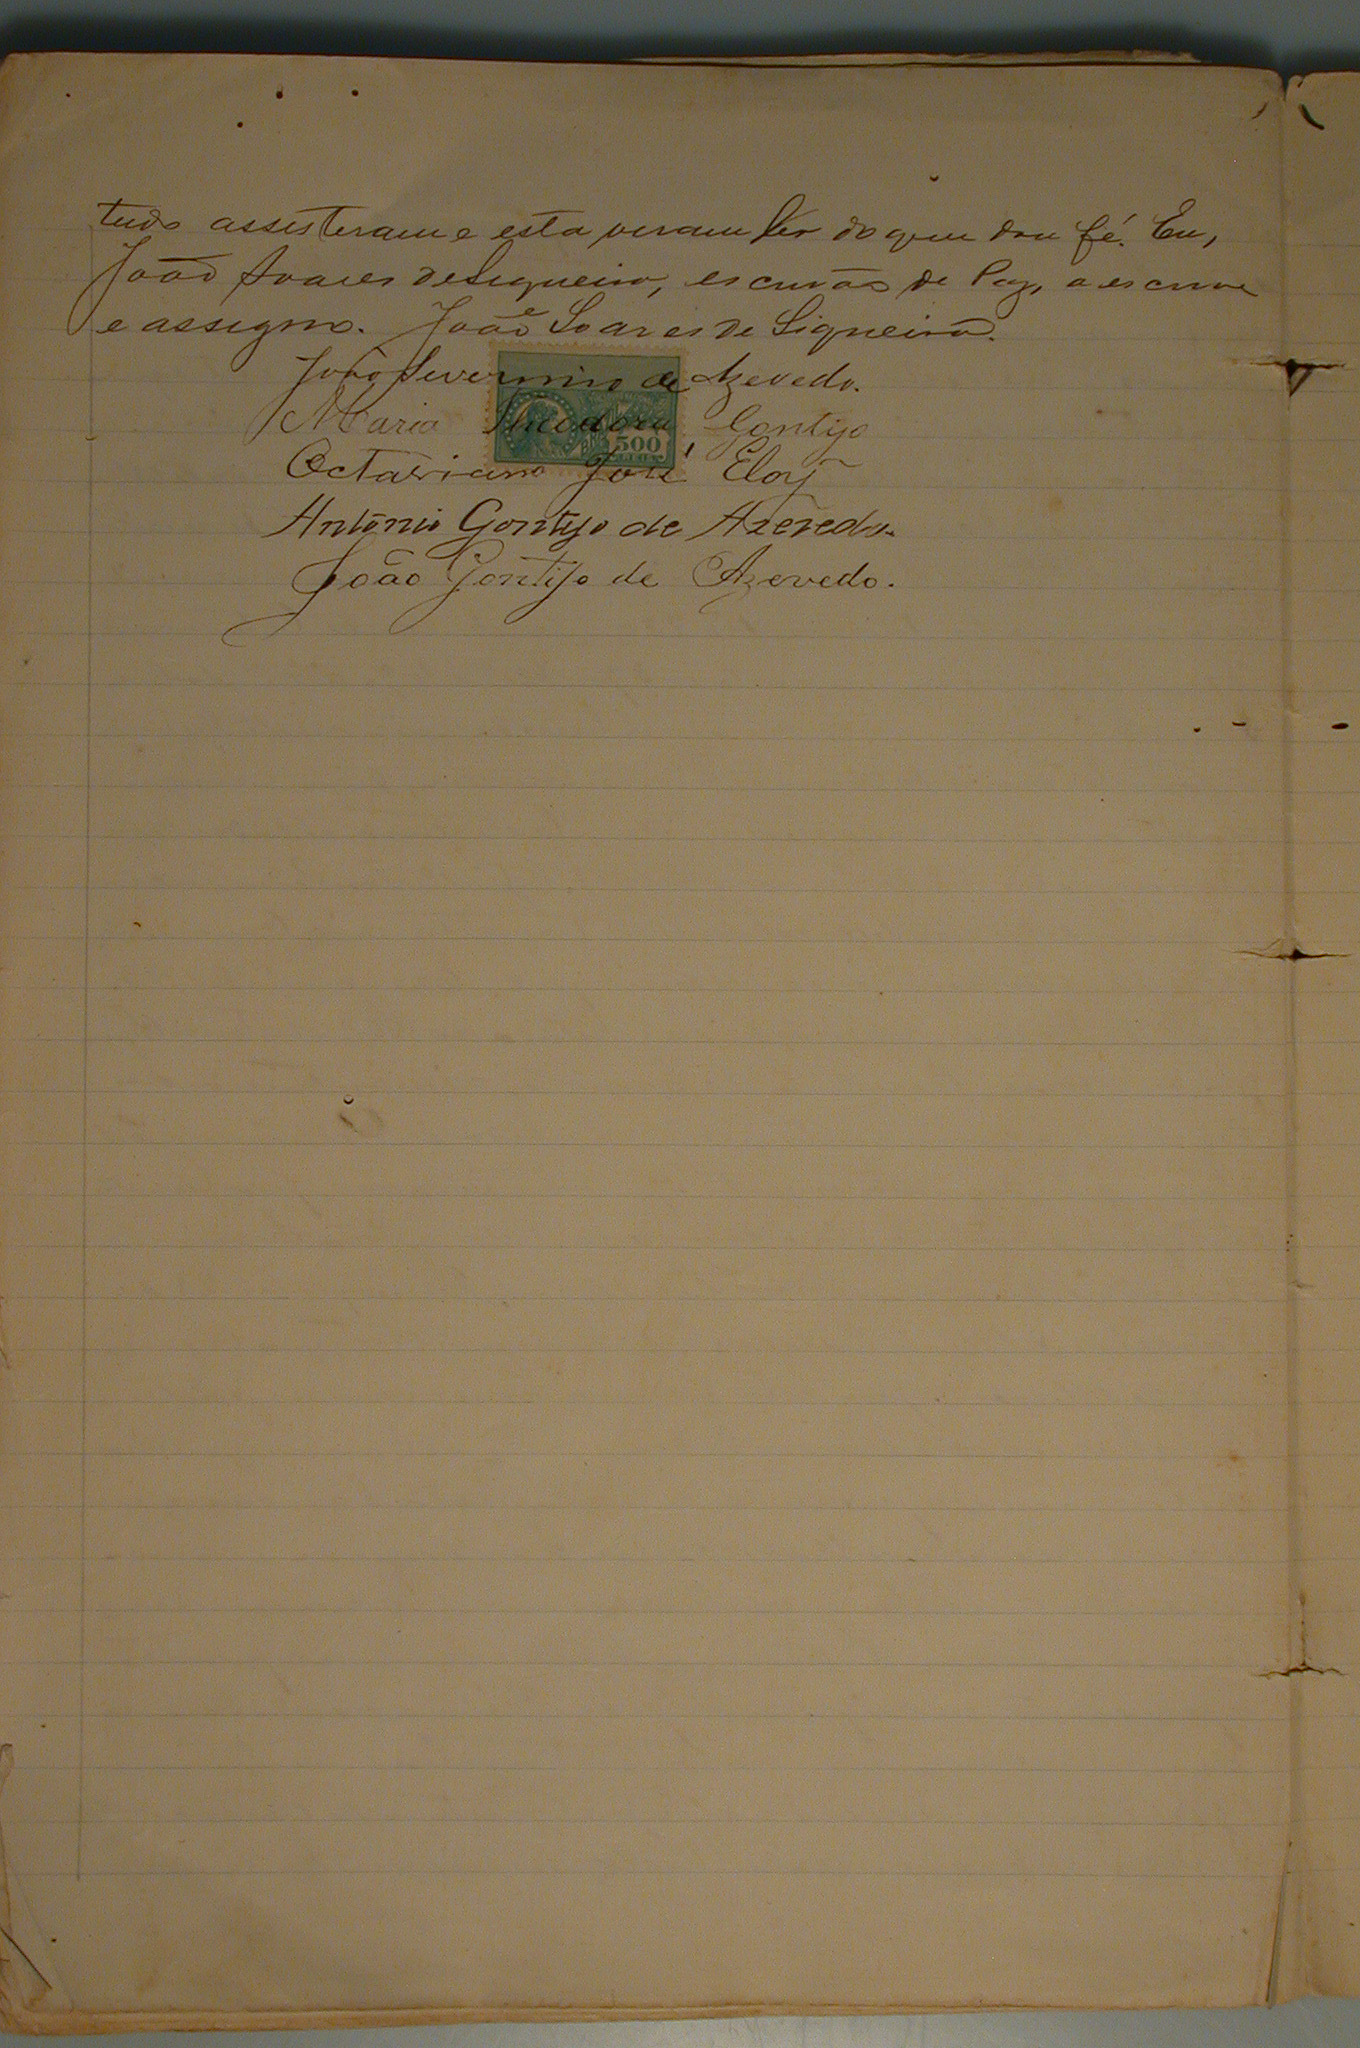 tudo assisteram e esta viram ler do que dou fé. Eu,
João Soares de Siqueira, escrivão de Paz, a escrevi
e assigno. João Soares de Siqueira.
João Severino de Azevedo.
Maria Theodora Gontijo
500
Octaviano José Eloy
Antônio Gontijo de Azevedo.
João Gontijo de Azevedo.